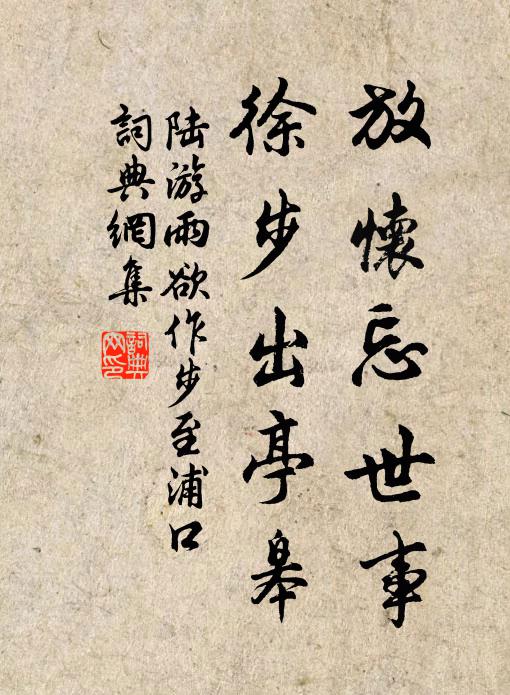 放懷忘世事
徐步出亭皋
陆游雨欲作步至浦口
詞典網集
詞典网印